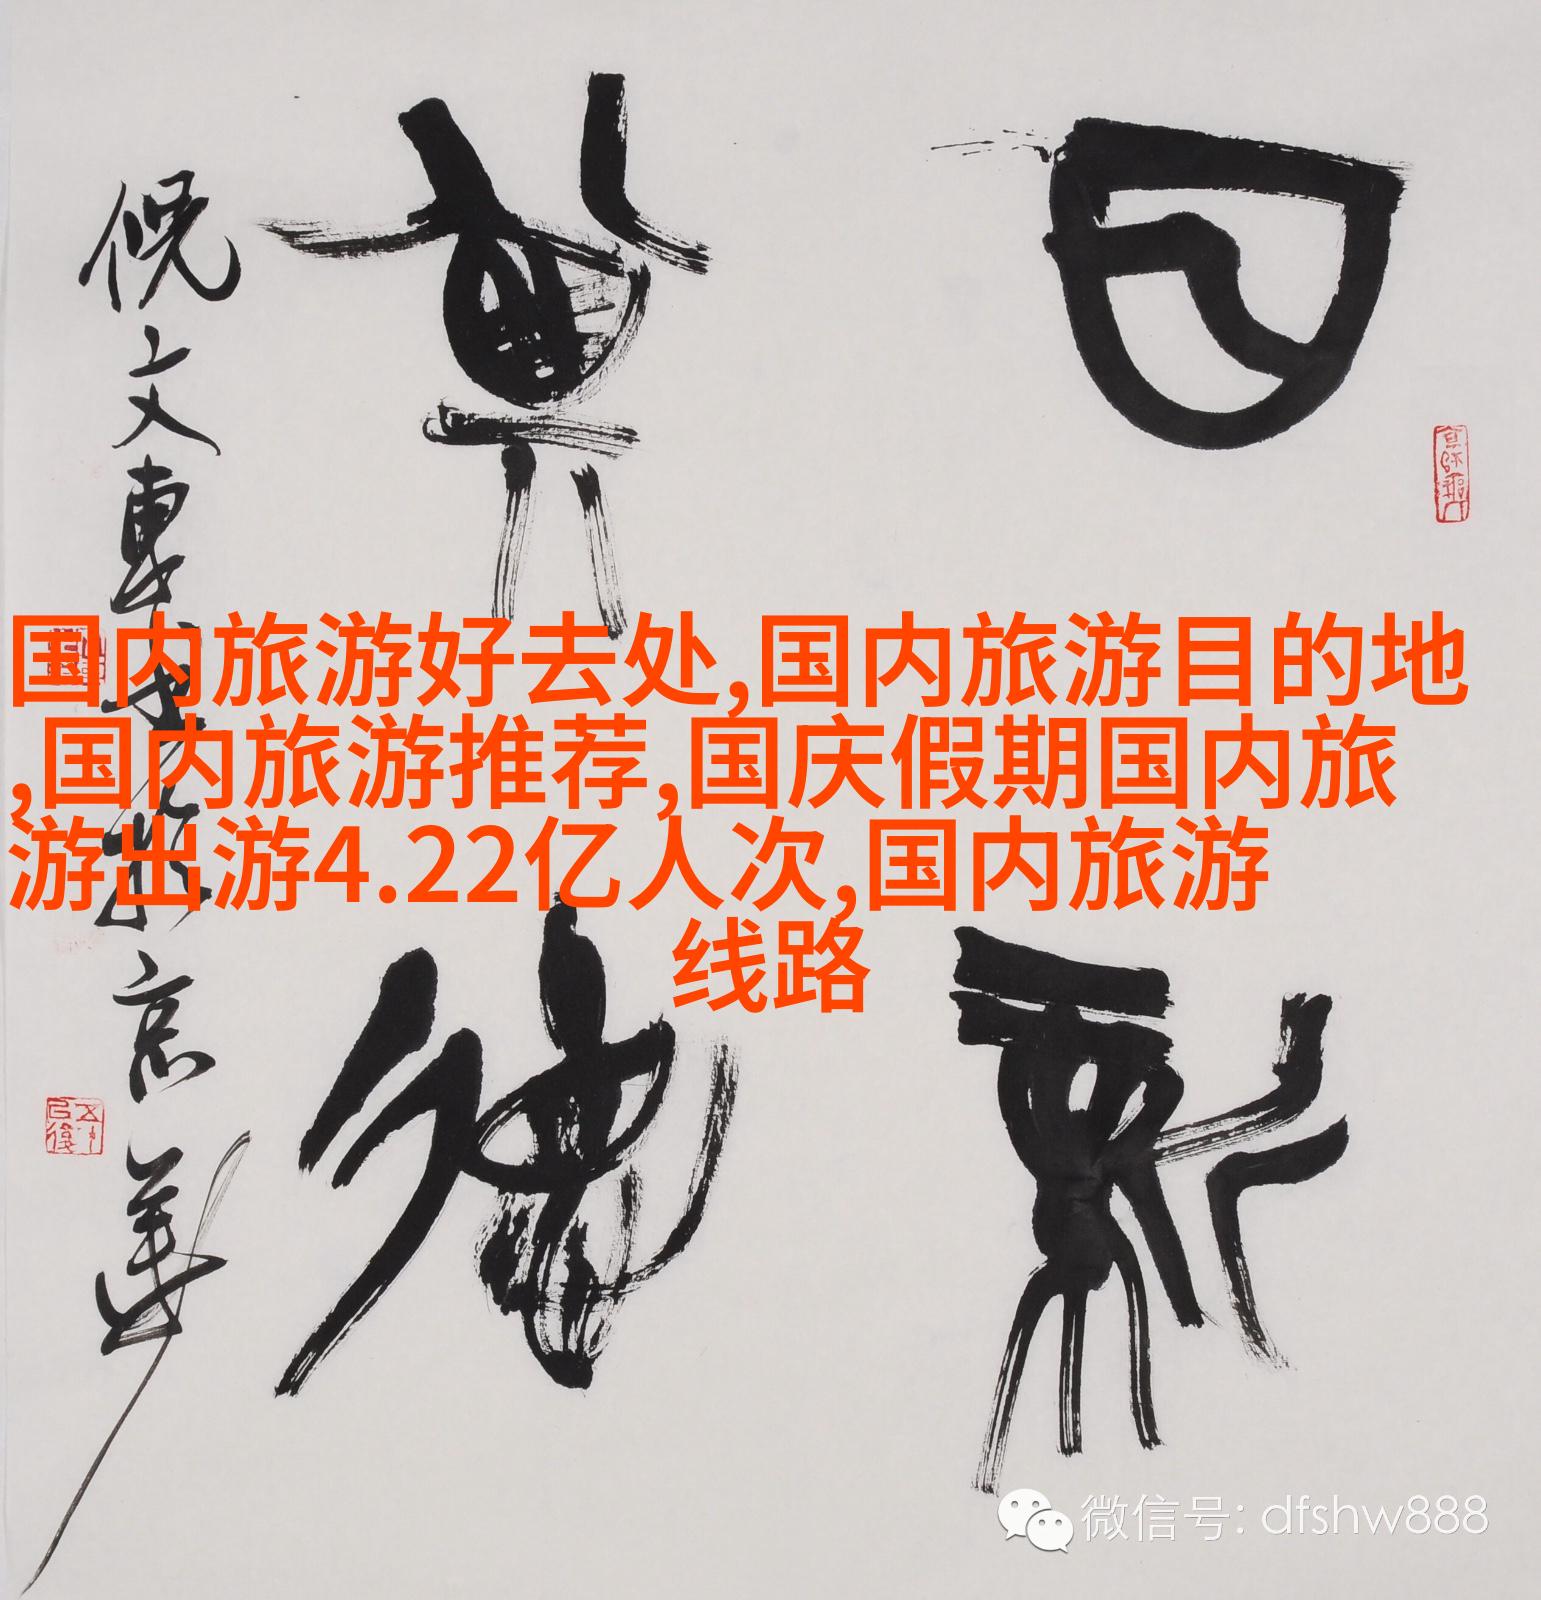 国内旅游好去处,国内旅游目的地
,国内旅游推荐,国庆假期国内旅
游出游4.22亿人次,国内旅游
线路
日新其德
倪文東書於京華
微信号: dfshw888